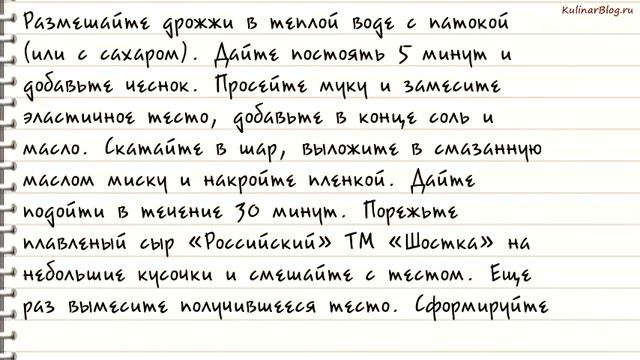 KulinarBlog.ru
Размешайте дрожжи в теплой воде с патокой
(или с сахаром). Дайте постоять 5 минут и
добавьте чеснок. Просейте муку и замесите
эластичное тесто, добавьте в конце соль и
масло. Скатайте в шар, выложите в смазанную
маслом миску и накройте пленкой. Дайте
подойти в течение 30 минут. Порежьте
плавленый сыр «Российский» ТМ «Шостка» на
небольшие кусочки и смешайте с тестом. Еще
раз вымесите получившееся тесто. Сформируйте